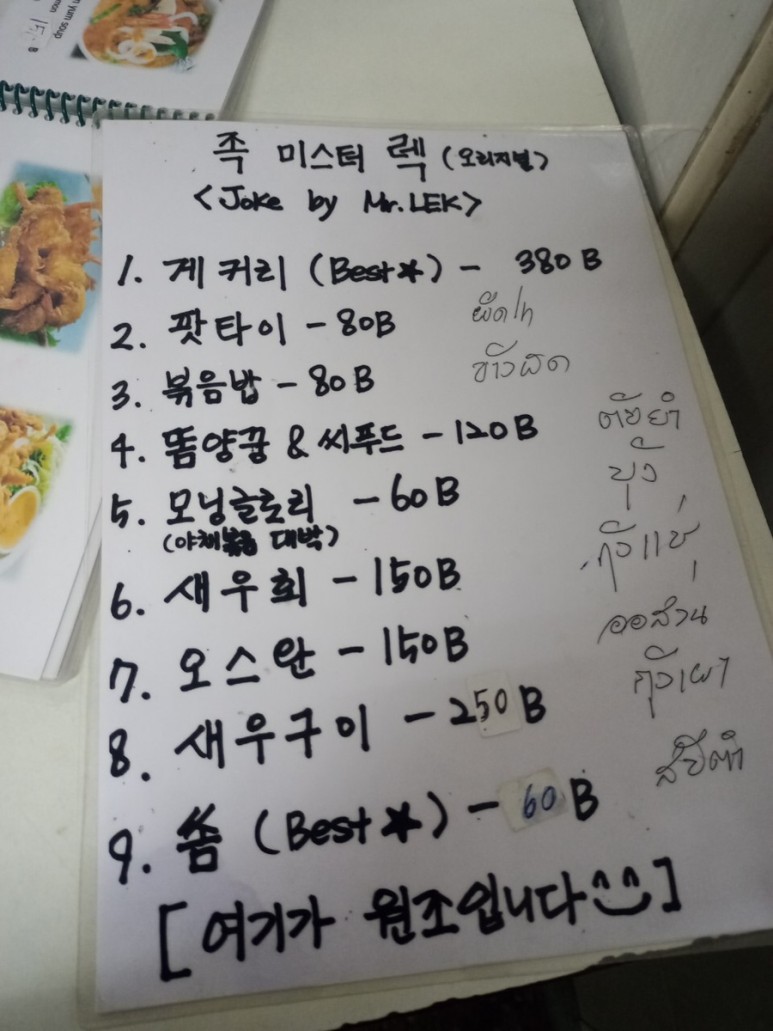 족 미스터 렉 (오리지널)
<Joke by Mr.LEK>
1. 게 커리 (Best*) - 380 B
2. 팟타이 - 80B ผัดไท
3. 볶음밥 - 80B ข้าวผัด
4. 똠양꿍 & 씨푸드 - 120B
5. 모닝글로리 - 60B
(야채볶음 대박)
6. 새우회 - 150B
7. 오스완 - 150B ออส่วน
8. 새우구이 - 250 B กุ้งเผา
9. 쏨 (Best*) - 60 B
[여기가 원조입니다^^]
yum soup